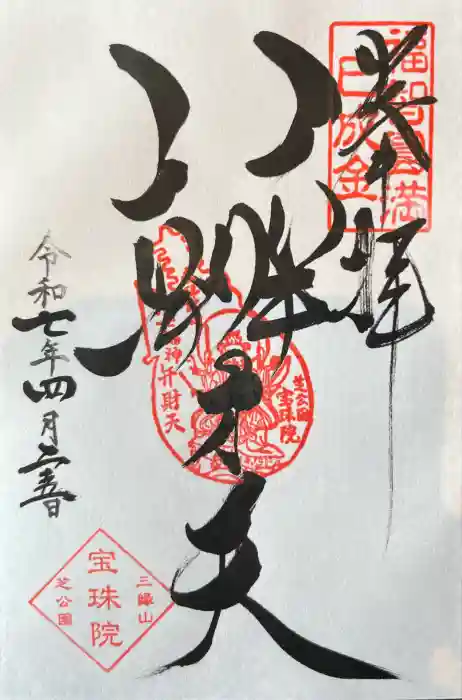 奉拝
福智
満
巳成金
辨才天
福神
弁財天
芝公園
宝珠院
令和七年四月二十五日
三縁山
宝珠院
芝公園